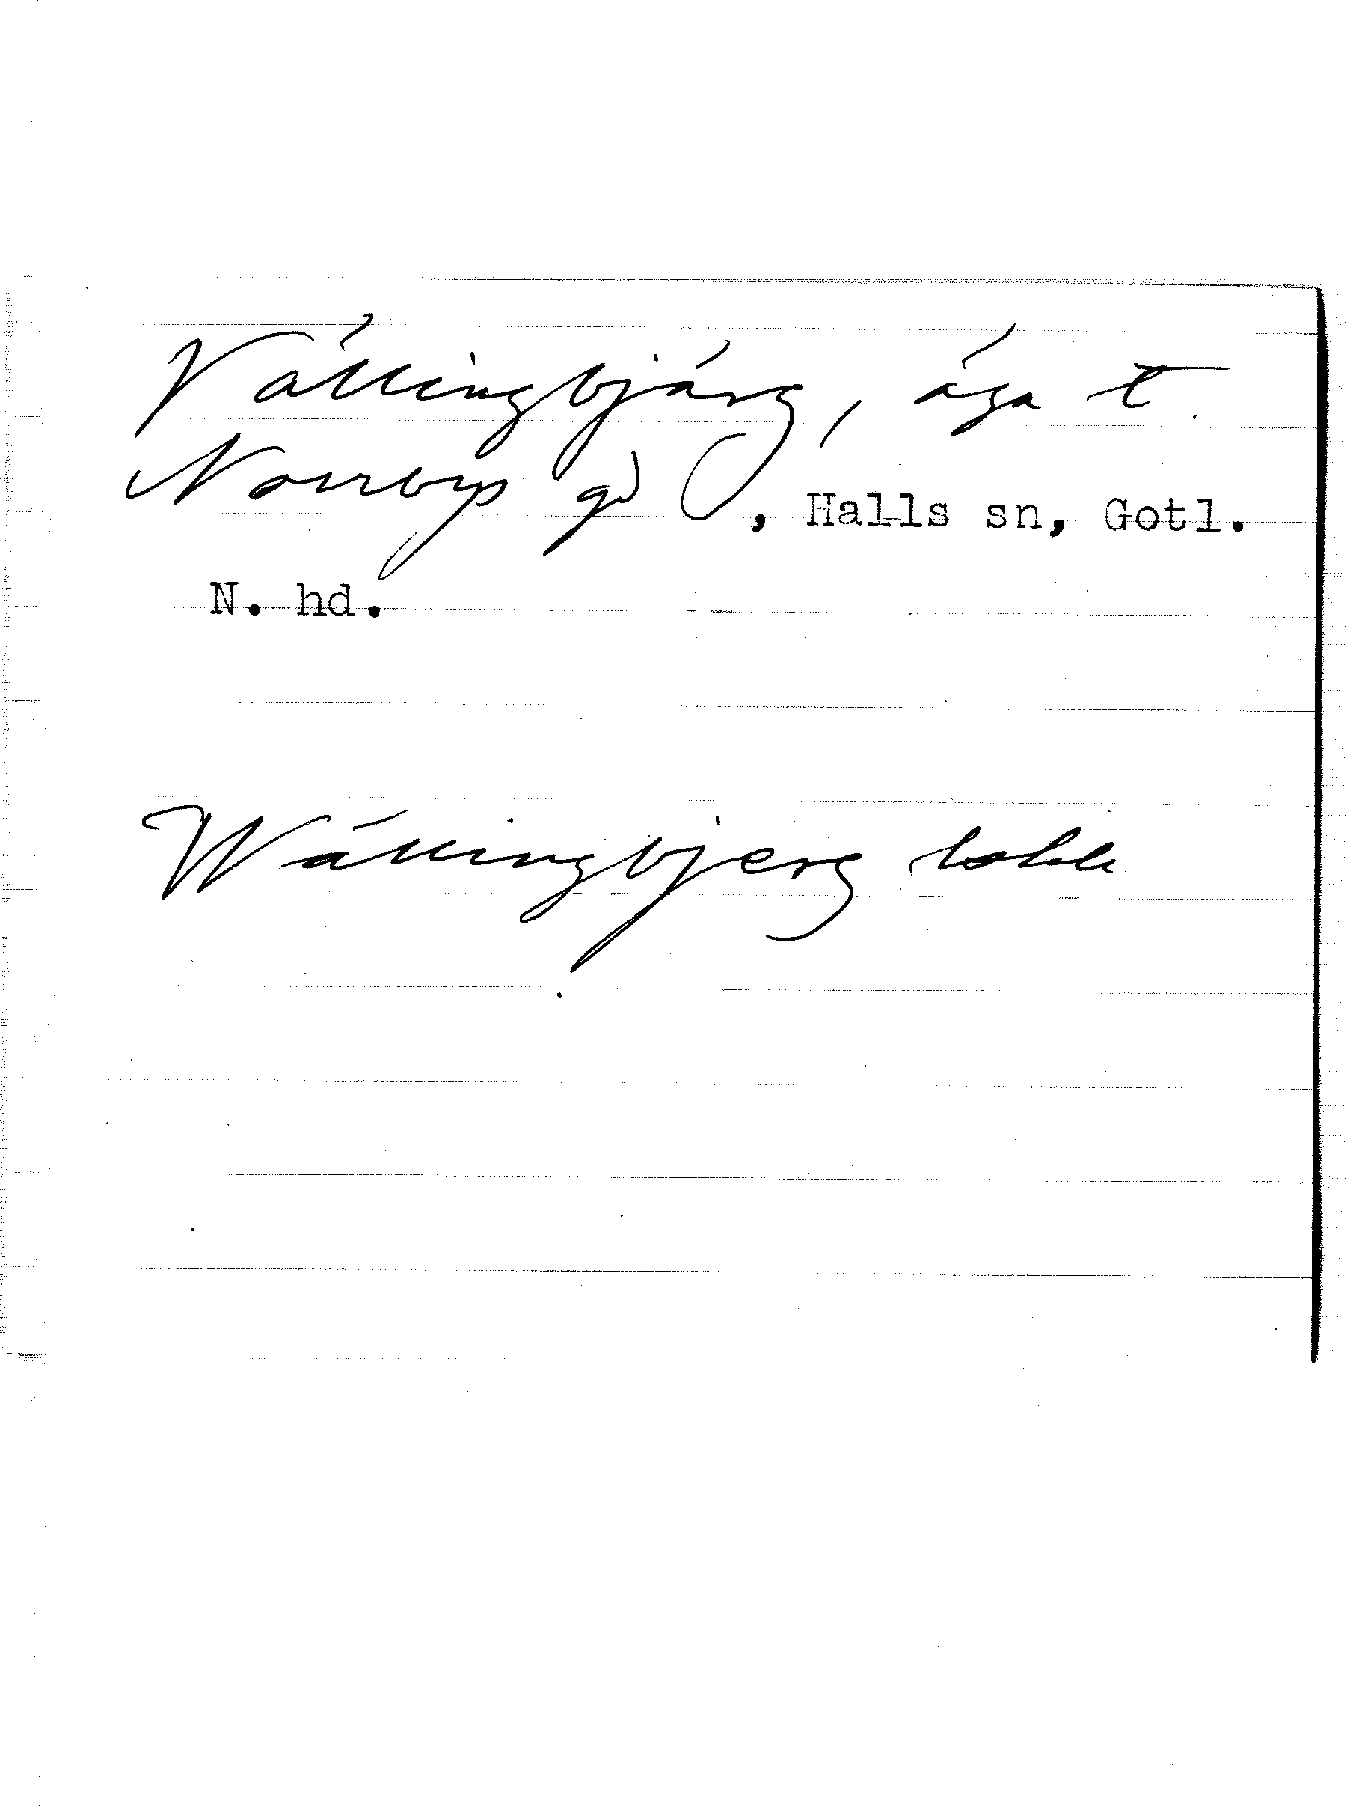 Vällingbjärg, äga t.
Norrbys gd, Halls sn, Gotl.
N. hd.
Wällingbjerg